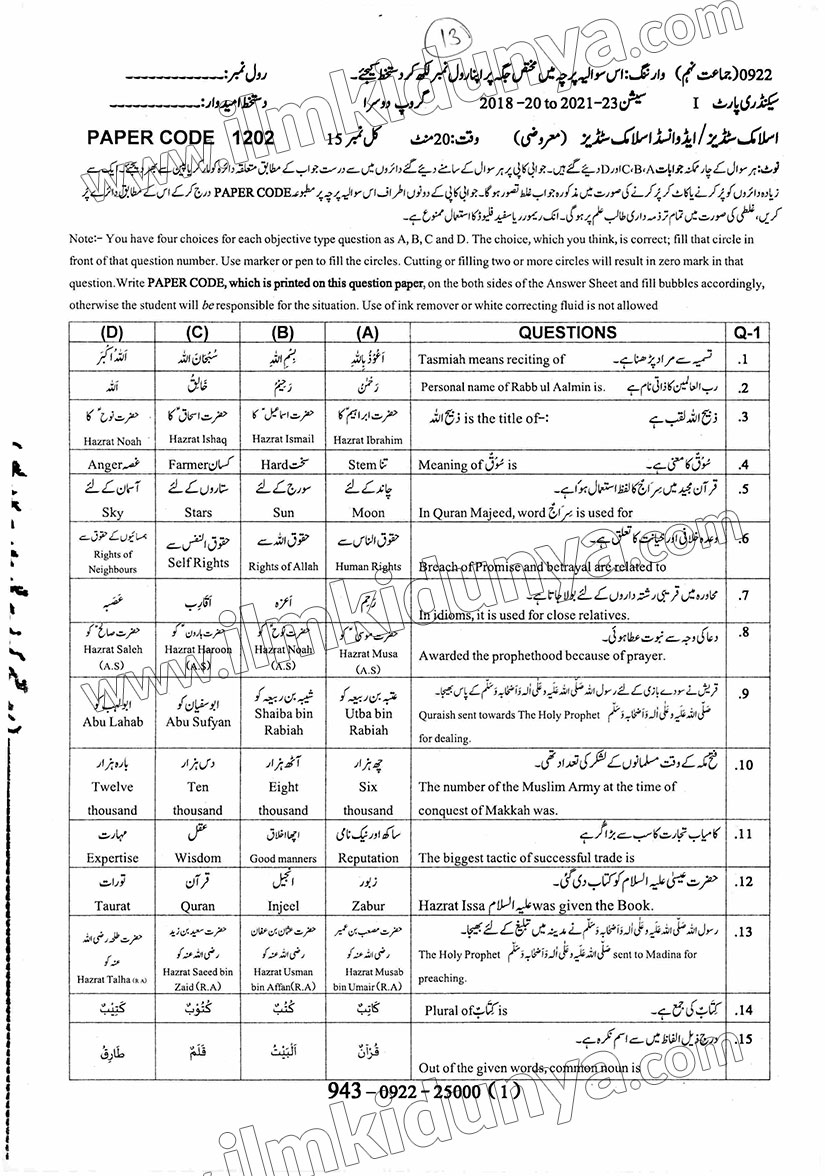 13
0922 (جماعت نہم) وارننگ: اس سوالیہ پرچہ میں مختص جگہ پر اپنا رول نمبر لکھ کر دستخط کیجئے۔ رول نمبر:
سیکنڈری پارٹ I سیشن 2018 -20 to 2021-23 گروپ دوسرا دستخط امیدوار:
اسلامک سٹڈیز / ایڈوانسڈ اسلامک سٹڈیز (معروضی) وقت: 20 منٹ کل نمبر 15 PAPER CODE 1202
نوٹ: ہر سوال کے چار ممکنہ جوابات C، B، A اور D دیئے گئے ہیں۔ جوابی کاپی پر ہر سوال کے سامنے دیئے گئے دائروں میں سے درست جواب کے مطابق متعلقہ دائرہ کو مارکر یا پین سے بھر دیجئے۔ ایک سے
زیادہ دائروں کو پُر کرنے یا کاٹ کر پُر کرنے کی صورت میں مذکورہ جواب غلط تصور ہوگا۔ جوابی کاپی کے دونوں اطراف اس سوالیہ پرچہ پر مطبوعہ PAPER CODE درج کر کے اس کے مطابق دائرے پُر
کریں، غلطی کی صورت میں تمام تر ذمہ داری طالب علم پر ہوگی۔ انک ریموور یا سفید فلیوڈ کا استعمال ممنوع ہے۔
Note:- You have four choices for each objective type question as A, B, C and D. The choice, which you think, is correct; fill that circle in
front of that question number. Use marker or pen to fill the circles. Cutting or filling two or more circles will result in zero mark in that
question.Write PAPER CODE, which is printed on this question paper, on the both sides of the Answer Sheet and fill bubbles accordingly,
otherwise the student will be responsible for the situation. Use of ink remover or white correcting fluid is not allowed
(D) (C) (B) (A) QUESTIONS Q-1
اَللهُ اَكْبَرُ سُبْحَانَ الله بِسْمِ الله اَعُوْذُ بِاللهِ Tasmiah means reciting of تسمیہ سے مراد پڑھنا ہے۔ .1
اَللہ خَالِقٌ رَحِیْمٌ رَحْمٰنٌ Personal name of Rabb ul Aalmin is. رب العالمین کا ذاتی نام ہے .2
حضرت نوحؑ کا حضرت اسحاقؑ کا حضرت اسماعیلؑ کا حضرت ابراہیمؑ کا ذبیح اللہ is the title of-: ذبیح اللہ لقب ہے .3
Hazrat Noah Hazrat Ishaq Hazrat Ismail Hazrat Ibrahim
Anger غصہ Farmer کسان Hard سخت Stem تنا Meaning of سُوْقٌ is سُوْقٌ کا معنی ہے۔ .4
آسمان کے لئے ستاروں کے لئے سورج کے لئے چاند کے لئے قرآن مجید میں سِرَاجٌ کا لفظ استعمال ہوا ہے۔ .5
Sky Stars Sun Moon In Quran Majeed, word سِرَاجٌ is used for
ہمسائیوں کے حقوق سے حقوق النفس سے حقوق اللہ سے حقوق الناس سے وعدہ خلافی اور خیانت کا تعلق ہے۔ .6
Rights of Neighbours Self Rights Rights of Allah Human Rights Breach of Promise and betrayal are related to
عَصَبہ اَقَارِب اَعِزَّہ رَحِم محاورہ میں قریبی رشتہ داروں کے لئے بولا جاتا ہے۔ .7
In idioms, it is used for close relatives.
حضرت صالحؑ کو حضرت ہارونؑ کو حضرت نوحؑ کو حضرت موسیٰؑ کو دعا کی وجہ سے نبوت عطا ہوئی۔ .8
Hazrat Saleh (A.S) Hazrat Haroon (A.S) Hazrat Noah (A.S) Hazrat Musa (A.S) Awarded the prophethood because of prayer.
ابولہب کو ابوسفیان کو شیبہ بن ربیعہ کو عتبہ بن ربیعہ کو قریش نے سودے بازی کے لئے رسول اللہ صَلَّی اللہ عَلَیْہِ وَعَلٰی اٰلِہٖ وَاَصْحَابِہٖ وَسَلَّمَ کے پاس بھیجا۔ .9
Abu Lahab Abu Sufyan Shaiba bin Rabiah Utba bin Rabiah Quraish sent towards The Holy Prophet صَلَّی اللہ عَلَیْہِ وَعَلٰی اٰلِہٖ وَاَصْحَابِہٖ وَسَلَّمَ
for dealing.
بارہ ہزار دس ہزار آٹھ ہزار چھ ہزار فتح مکہ کے وقت مسلمانوں کے لشکر کی تعداد تھی۔ .10
Twelve thousand Ten thousand Eight thousand Six thousand The number of the Muslim Army at the time of
conquest of Makkah was.
مہارت عقل اچھا اخلاق ساکھ اور نیک نامی کامیاب تجارت کا سب سے بڑا گُر ہے .11
Expertise Wisdom Good manners Reputation The biggest tactic of successful trade is
تورات قرآن انجیل زبور حضرت عیسیٰ علیہ السلام کو کتاب دی گئی۔ .12
Taurat Quran Injeel Zabur Hazrat Issa علیہ السلام was given the Book.
حضرت طلحہ رضی اللہ عنہ کو حضرت سعید بن زید رضی اللہ عنہ کو حضرت عثمان بن عفان رضی اللہ عنہ کو حضرت مصعب بن عمیر رضی اللہ عنہ کو رسول اللہ صَلَّی اللہ عَلَیْہِ وَعَلٰی اٰلِہٖ وَاَصْحَابِہٖ وَسَلَّمَ نے مدینہ میں تبلیغ کے لئے بھیجا۔ .13
Hazrat Talha (R.A) Hazrat Saeed bin Zaid (R.A) Hazrat Usman bin Affan(R.A) Hazrat Musab bin Umair (R.A) The Holy Prophet صَلَّی اللہ عَلَیْہِ وَعَلٰی اٰلِہٖ وَاَصْحَابِہٖ وَسَلَّمَ sent to Madina for
preaching.
كَتِيْبٌ كُتُوْبٌ كُتُبٌ كَاتِبٌ Plural of كِتَابٌ is كِتَابٌ کی جمع ہے۔ .14
طَارِقٌ قَلَمٌ اَلْبَيْتُ قُرْآنٌ درج ذیل الفاظ میں سے اسم نکرہ ہے۔ .15
Out of the given words, common noun is
943 - 0922 - 25000 (1)
www.ilmkidunya.com
www.ilmkidunya.com
www.ilmkidunya.com
www.ilmkidunya.com